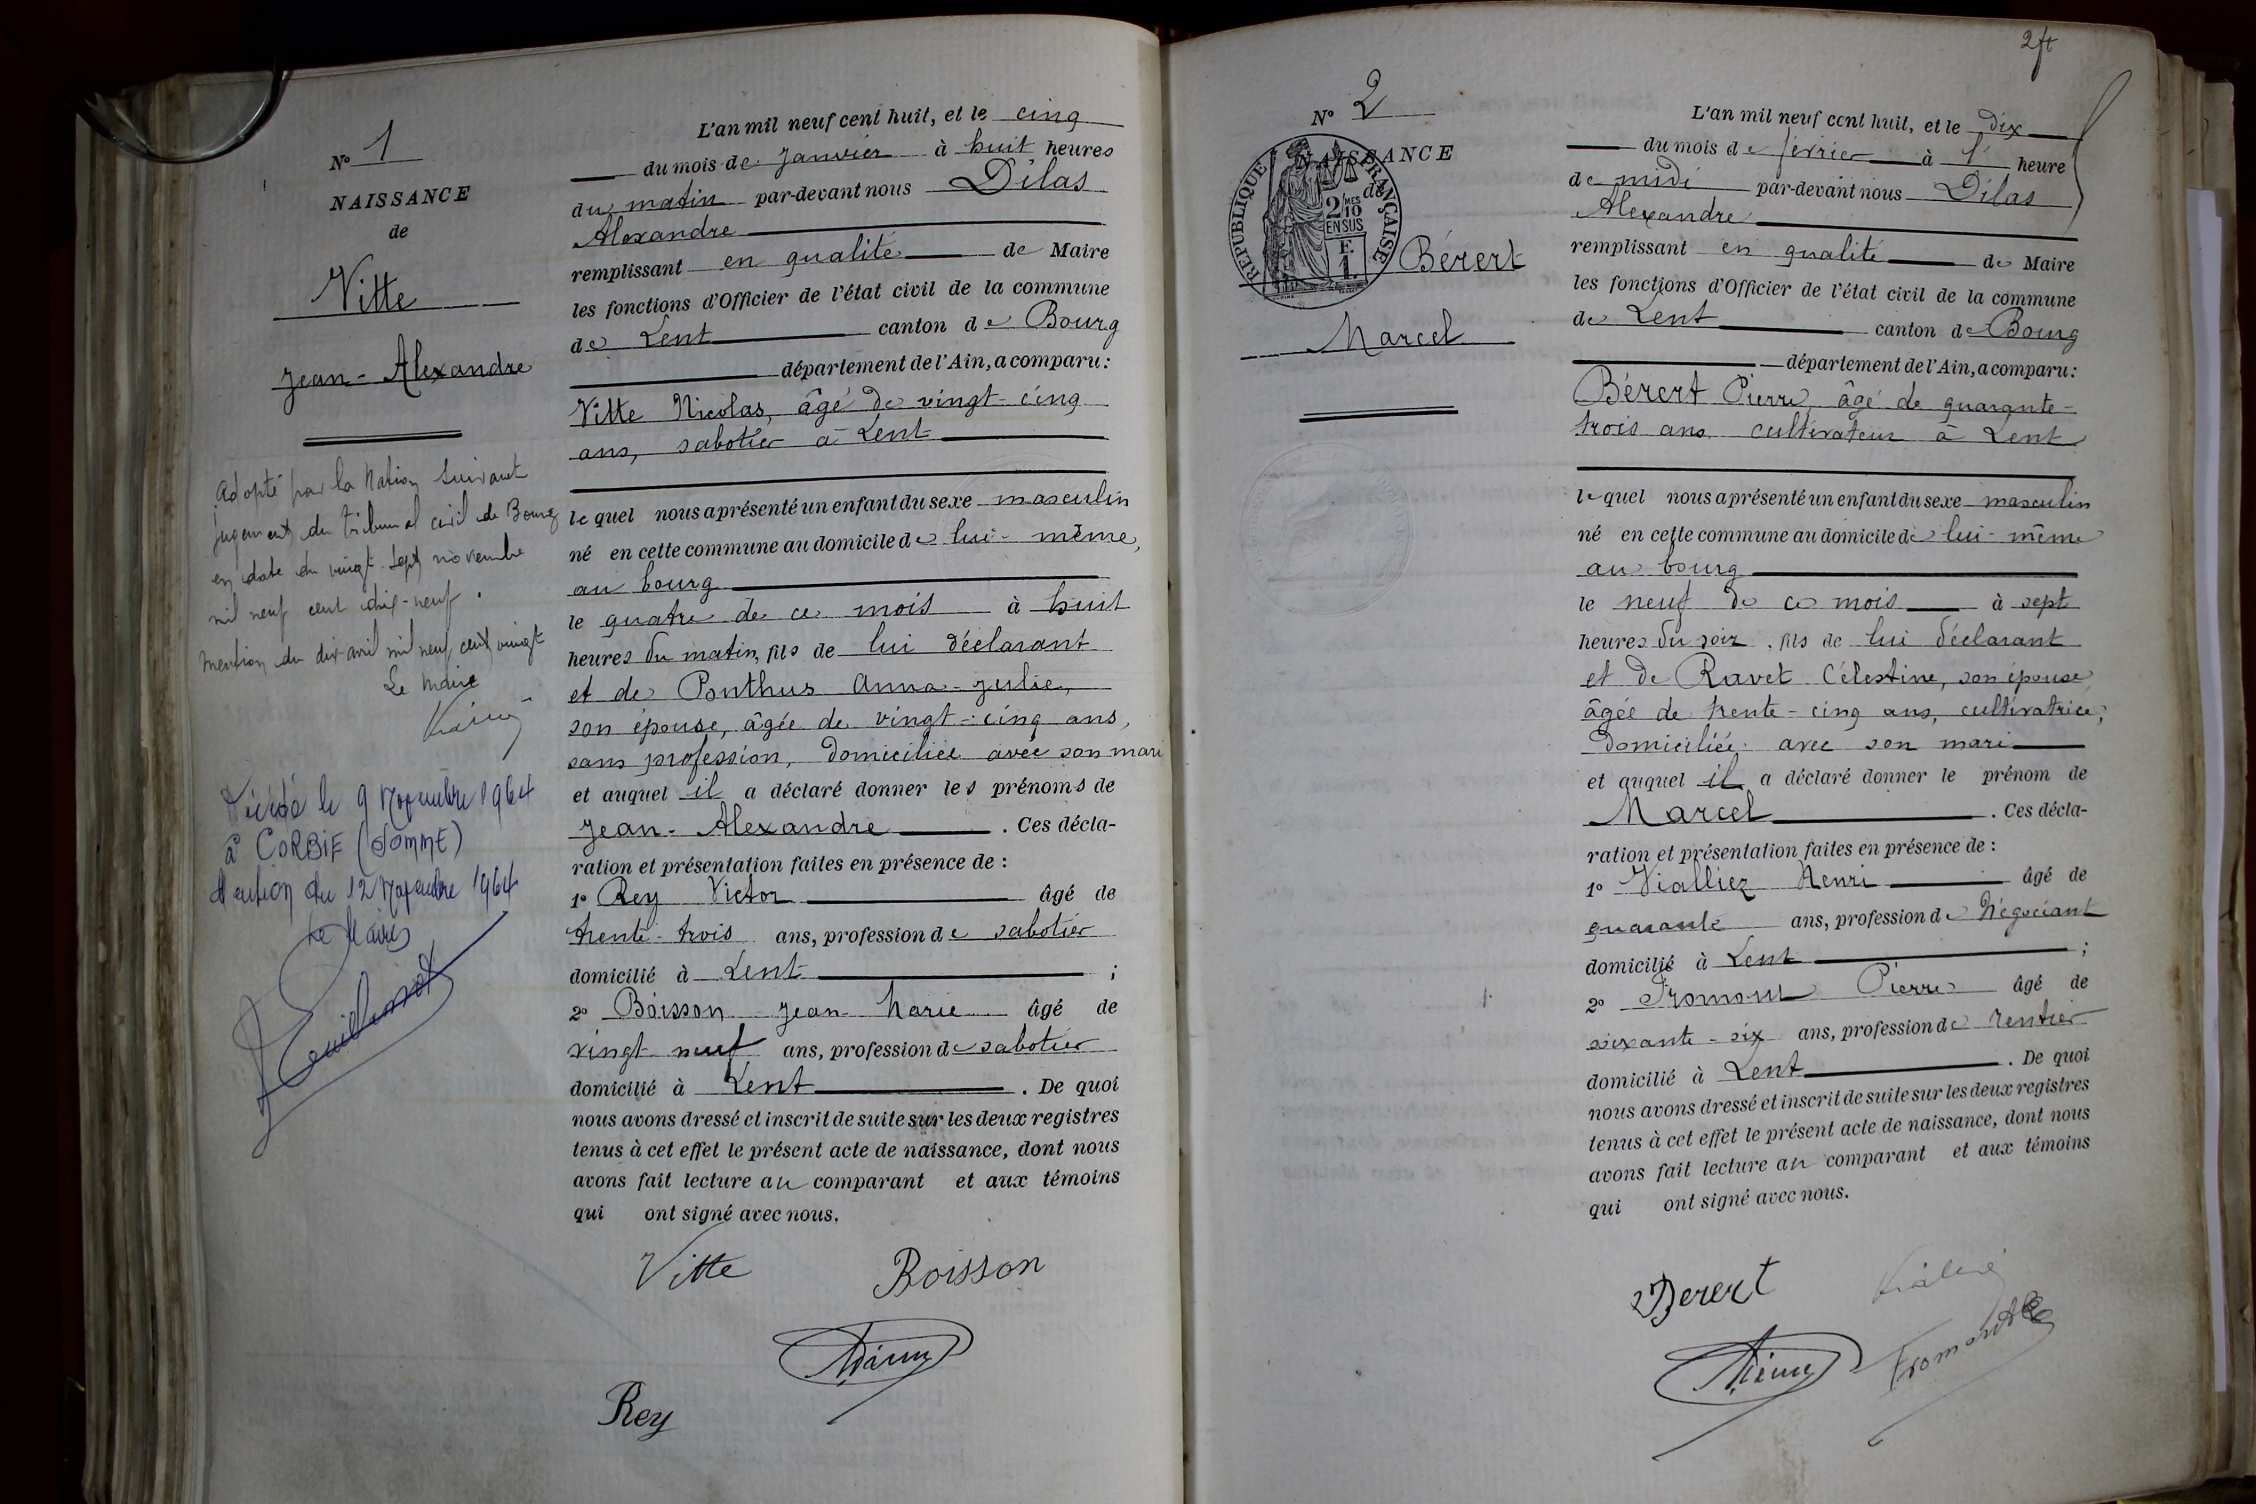 N° 1
NAISSANCE
de
Vitte
Jean-Alexandre
Adopté par la Nation suivant
jugement du tribunal civil de Bourg
en date du vingt-sept novembre
mil neuf cent dix-neuf.
Mention du dix avril mil neuf cent vingt
Le Maire
Décédé le 9 Novembre 1964
à CORBIE (SOMME)
Mention du 12 Novembre 1964
Le Maire
L'an mil neuf cent huit, et le cinq
du mois de Janvier à huit heures
du matin par-devant nous Dilas
Alexandre
remplissant en qualité de Maire
les fonctions d'Officier de l'état civil de la commune
de Lent canton de Bourg
département de l'Ain, a comparu:
Vitte Nicolas, âgé de vingt-cinq
ans, sabotier à Lent
lequel nous a présenté un enfant du sexe masculin
né en cette commune au domicile de lui-même,
au bourg
le quatre de ce mois à huit
heures du matin, fils de lui déclarant
et de Ponthus Anna-Julie,
son épouse, âgée de vingt-cinq ans,
sans profession, domiciliée avec son mari
et auquel il a déclaré donner les prénoms de
Jean-Alexandre. Ces décla-
ration et présentation faites en présence de :
1° Rey Victor âgé de
trente-trois ans, profession de sabotier
domicilié à Lent ;
2° Boisson Jean-Marie âgé de
vingt neuf ans, profession de sabotier
domicilié à Lent. De quoi
nous avons dressé et inscrit de suite sur les deux registres
tenus à cet effet le présent acte de naissance, dont nous
avons fait lecture au comparant et aux témoins
qui ont signé avec nous.
Vitte Boisson
Rey
2ft
N° 2
NAISSANCE
de
RÉPUBLIQUE FRANÇAISE
2/10 MES
EN SUS
F.
1.
Bérert
Marcel
L'an mil neuf cent huit, et le dix
du mois de février à 1 heure
de midi par-devant nous Dilas
Alexandre
remplissant en qualité de Maire
les fonctions d'Officier de l'état civil de la commune
de Lent canton de Bourg
département de l'Ain, a comparu:
Bérert Pierre, âgé de quarante-
trois ans, cultivateur à Lent
lequel nous a présenté un enfant du sexe masculin
né en cette commune au domicile de lui-même
au bourg
le neuf de ce mois à sept
heures du soir, fils de lui déclarant
et de Ravet Célestine, son épouse
âgée de trente-cinq ans, cultivatrice,
domiciliée avec son mari
et auquel il a déclaré donner le prénom de
Marcel. Ces décla-
ration et présentation faites en présence de :
1° Vialliez Henri âgé de
quarante ans, profession de Négociant
domicilié à Lent ;
2° Fromont Pierre âgé de
soixante-six ans, profession de rentier
domicilié à Lent. De quoi
nous avons dressé et inscrit de suite sur les deux registres
tenus à cet effet le présent acte de naissance, dont nous
avons fait lecture au comparant et aux témoins
qui ont signé avec nous.
Berert
Fromont